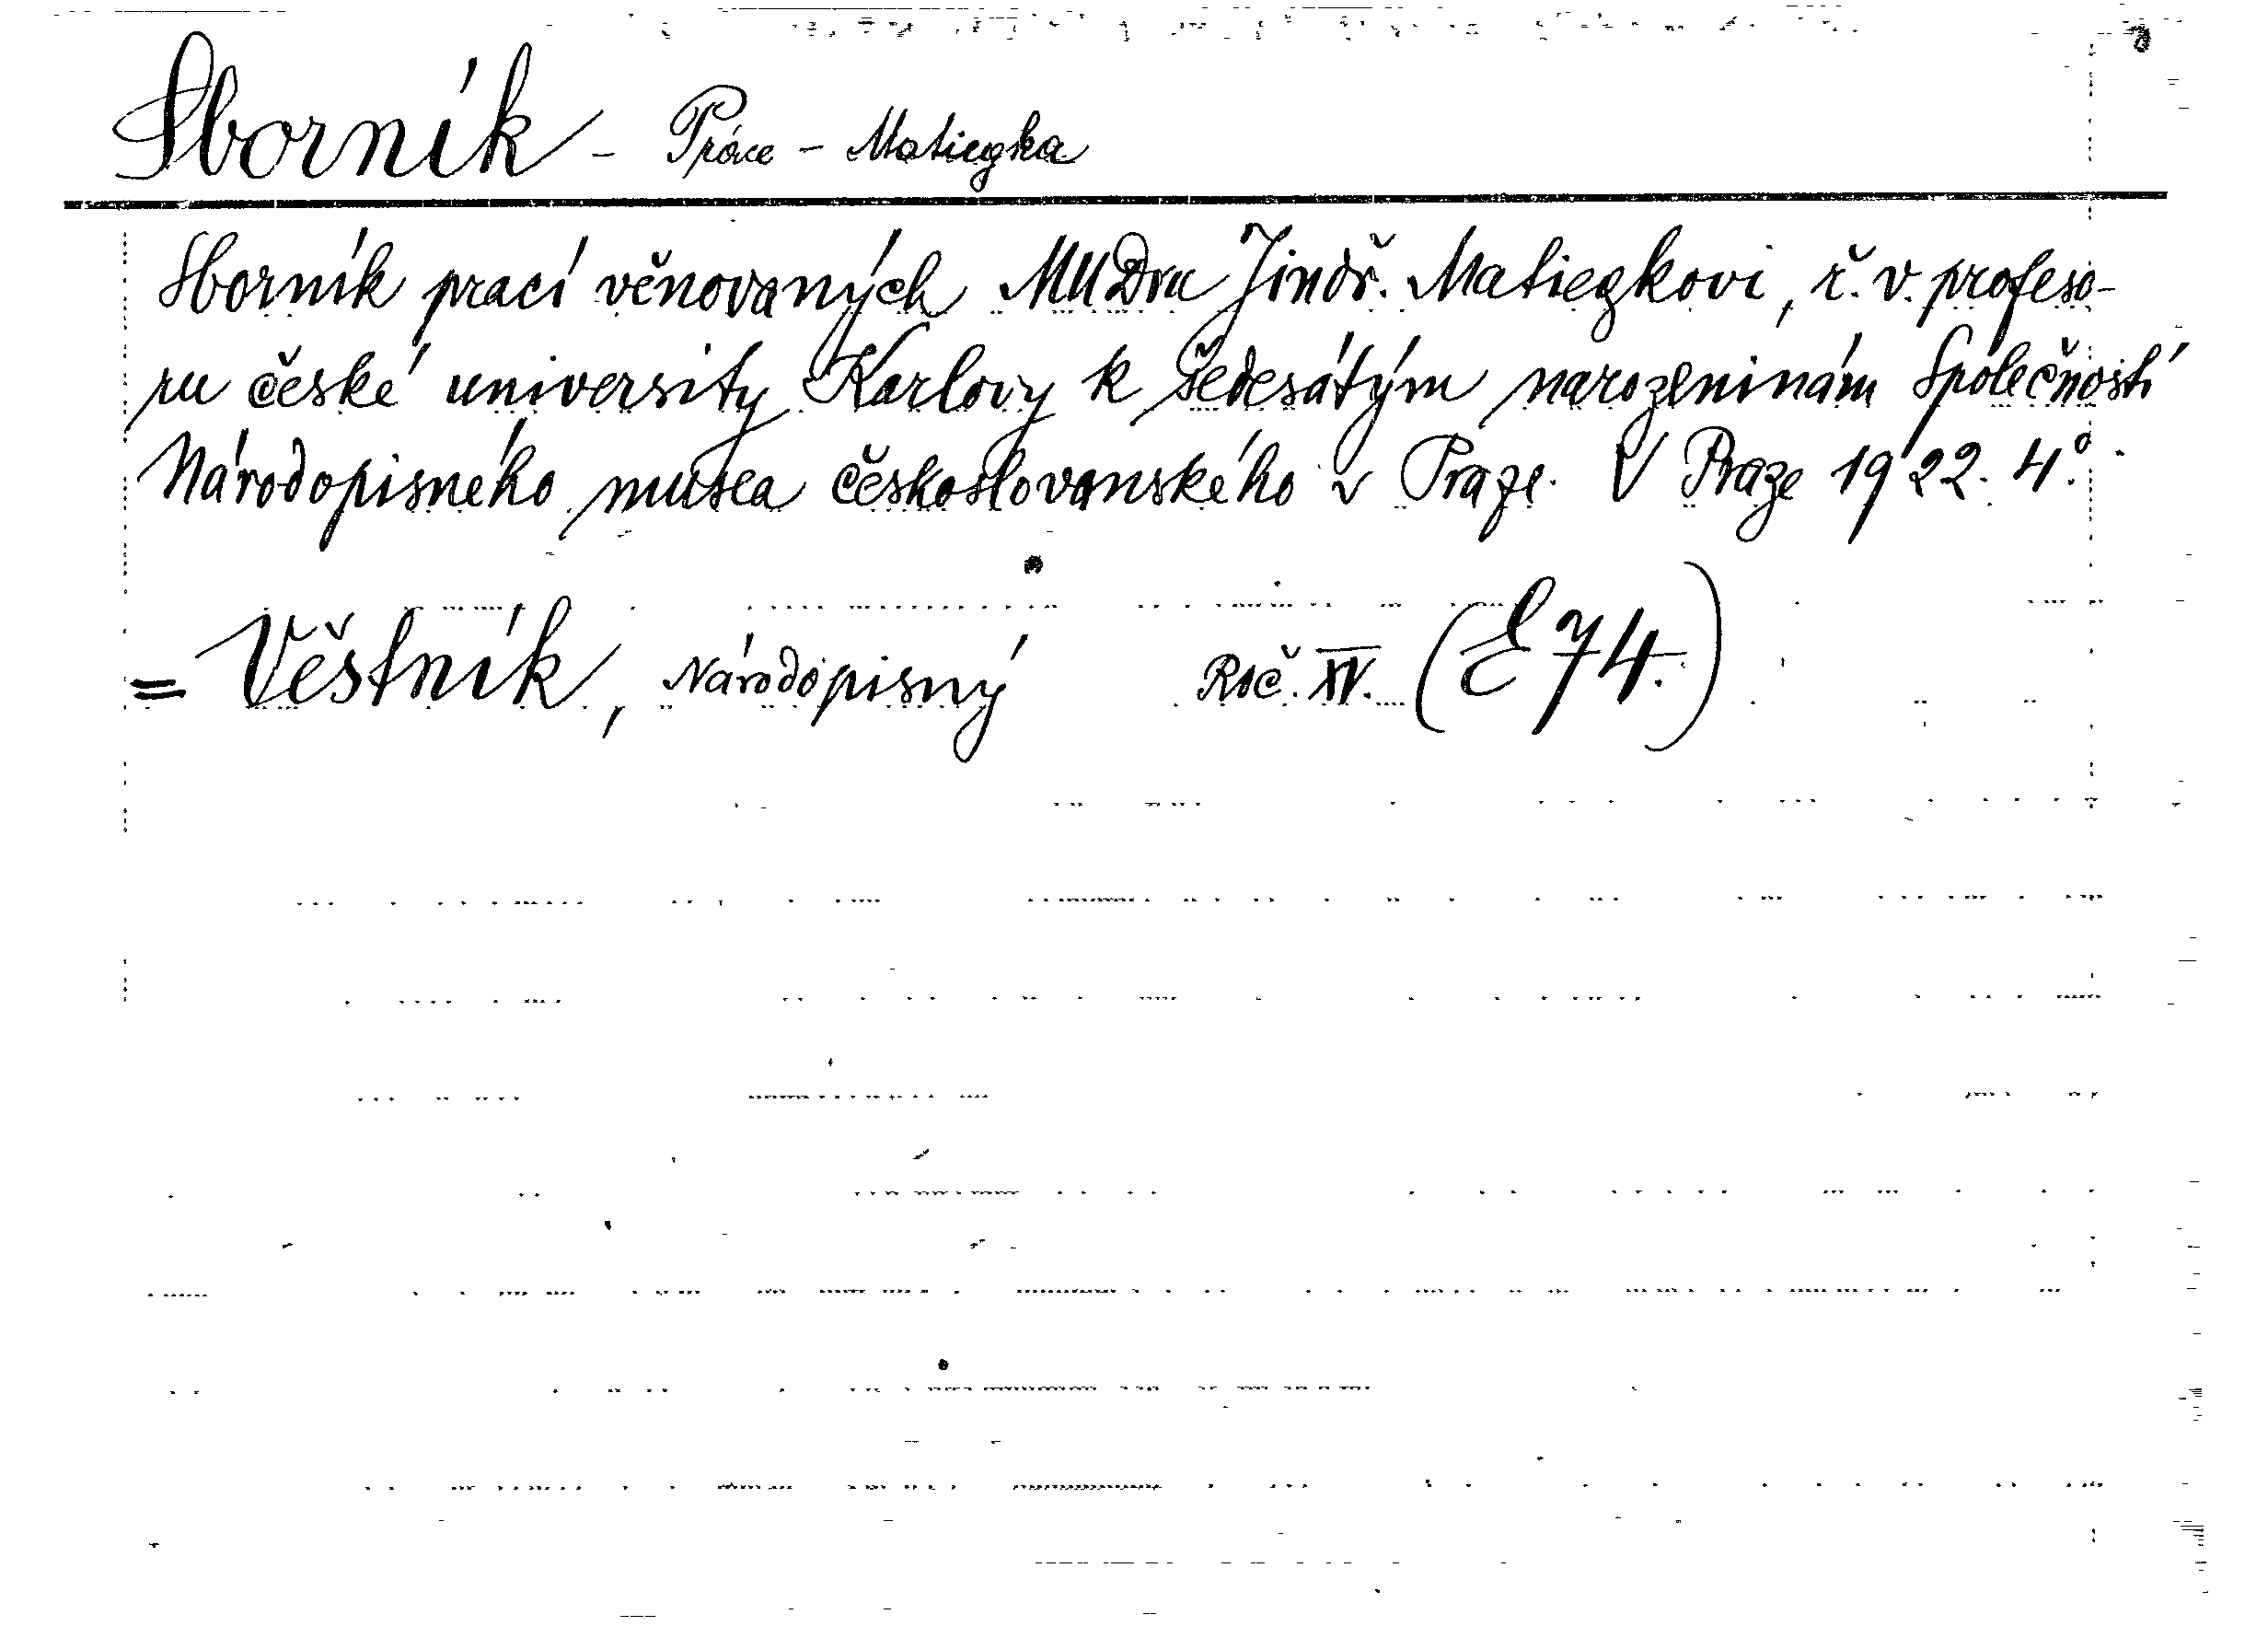 Sborník - Práce - Matiegka
Sborník prací věnovaných MUDru Jindř. Matiegkovi, ř. v. profeso-
ru české university Karlovy k šedesátým narozeninám Společností
Národopisného musea českoslovanského v Praze. V Praze 1922. 4°.
= Věstník, Národopisný Roč. XV. (E 74.)